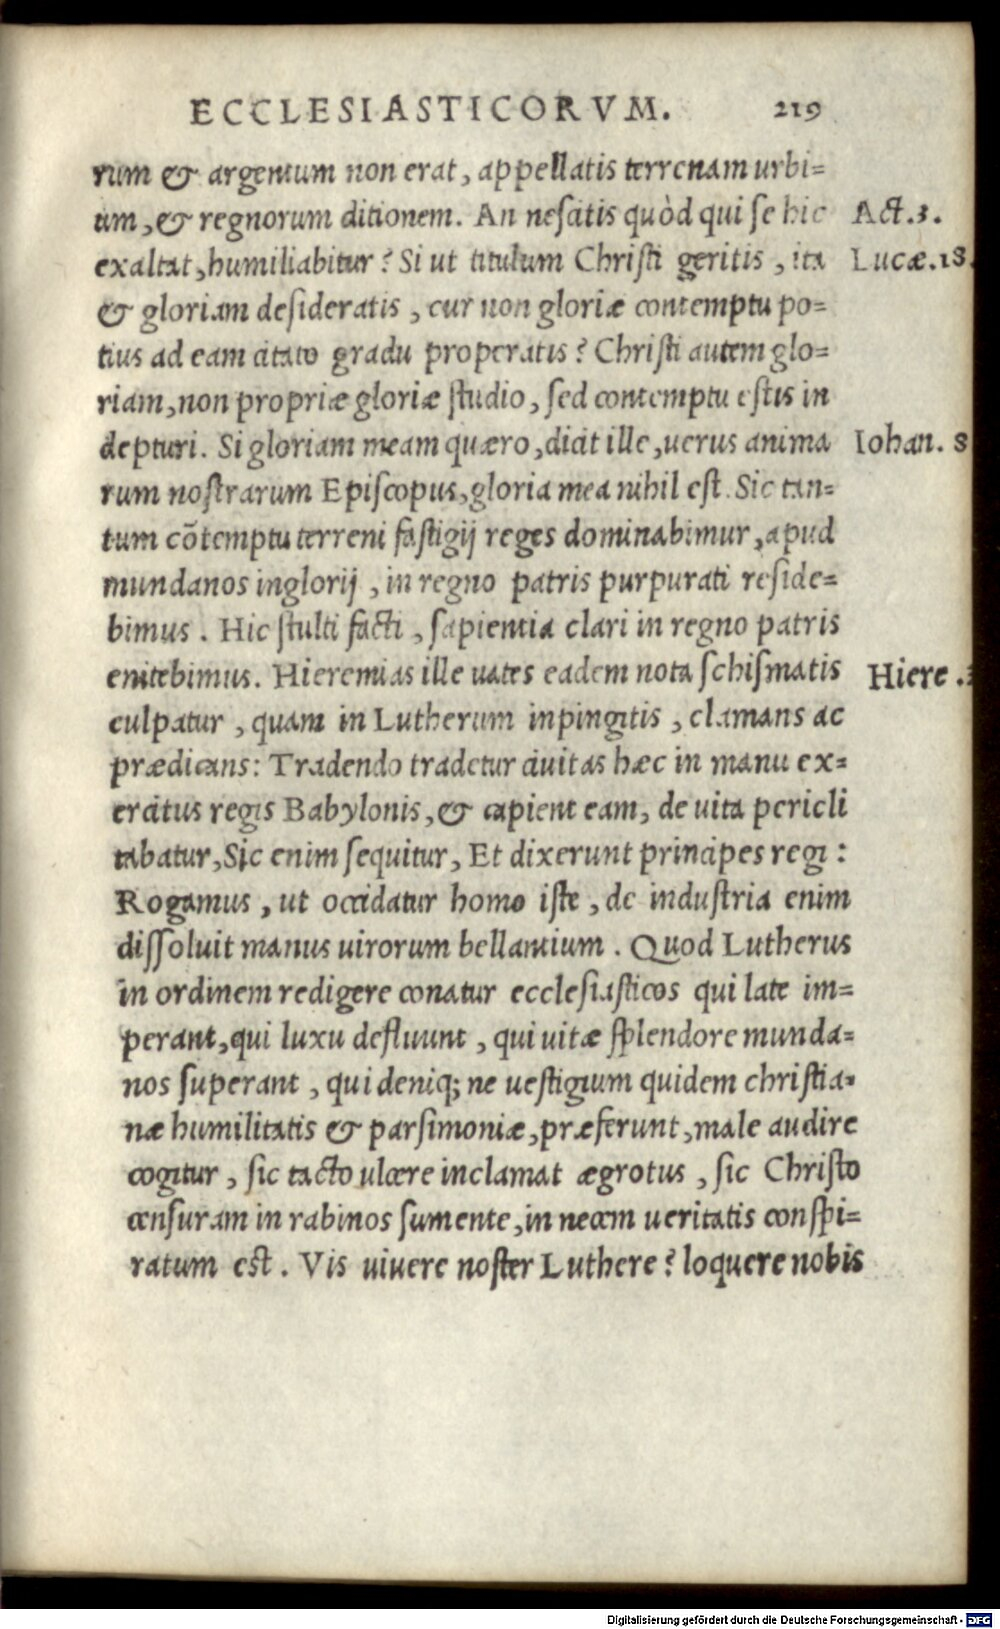 ECCLESIASTICORVM. 219
rum & argentum non erat, appellatis terrenam urbi=
um, & regnorum ditionem. An nescitis quòd qui se hic Act.3.
exaltat, humiliabitur? Si ut titulum Christi geritis, ita Lucæ.18.
& gloriam desideratis, cur non gloriæ contemptu po=
tius ad eam citato gradu properatis? Christi autem glo=
riam, non propriæ gloriæ studio, sed contemptu estis in
depturi. Si gloriam meam quæro, dicit ille, uerus anima Iohan. 8
rum nostrarum Episcopus, gloria mea nihil est. Sic tan=
tum cõtemptu terreni fastigij reges dominabimur, apud
mundanos inglorij, in regno patris purpurati reside=
bimus. Hic stulti facti, sapientia clari in regno patris
enitebimus. Hieremias ille uates eadem nota schismatis Hiere.
culpatur, quam in Lutherum inpingitis, clamans ac
prædicans: Tradendo tradetur ciuitas hæc in manu ex=
ercitus regis Babylonis, & capient eam, de uita pericli
tabatur, Sic enim sequitur, Et dixerunt principes regi:
Rogamus, ut occidatur homo iste, de industria enim
dissoluit manus uirorum bellantium. Quod Lutherus
in ordinem redigere conatur ecclesiasticos qui late im=
perant, qui luxu defluunt, qui uitæ splendore munda=
nos superant, qui deniq; ne uestigium quidem christia=
næ humilitatis & parsimoniæ, præferunt, male audire
cogitur, sic tacto ulcere inclamat ægrotus, sic Christo
censuram in rabinos sumente, in necem ueritatis conspi=
ratum est. Vis uiuere noster Luthere? loquere nobis
Digitalisierung gefördert durch die Deutsche Forschungsgemeinschaft - DFG